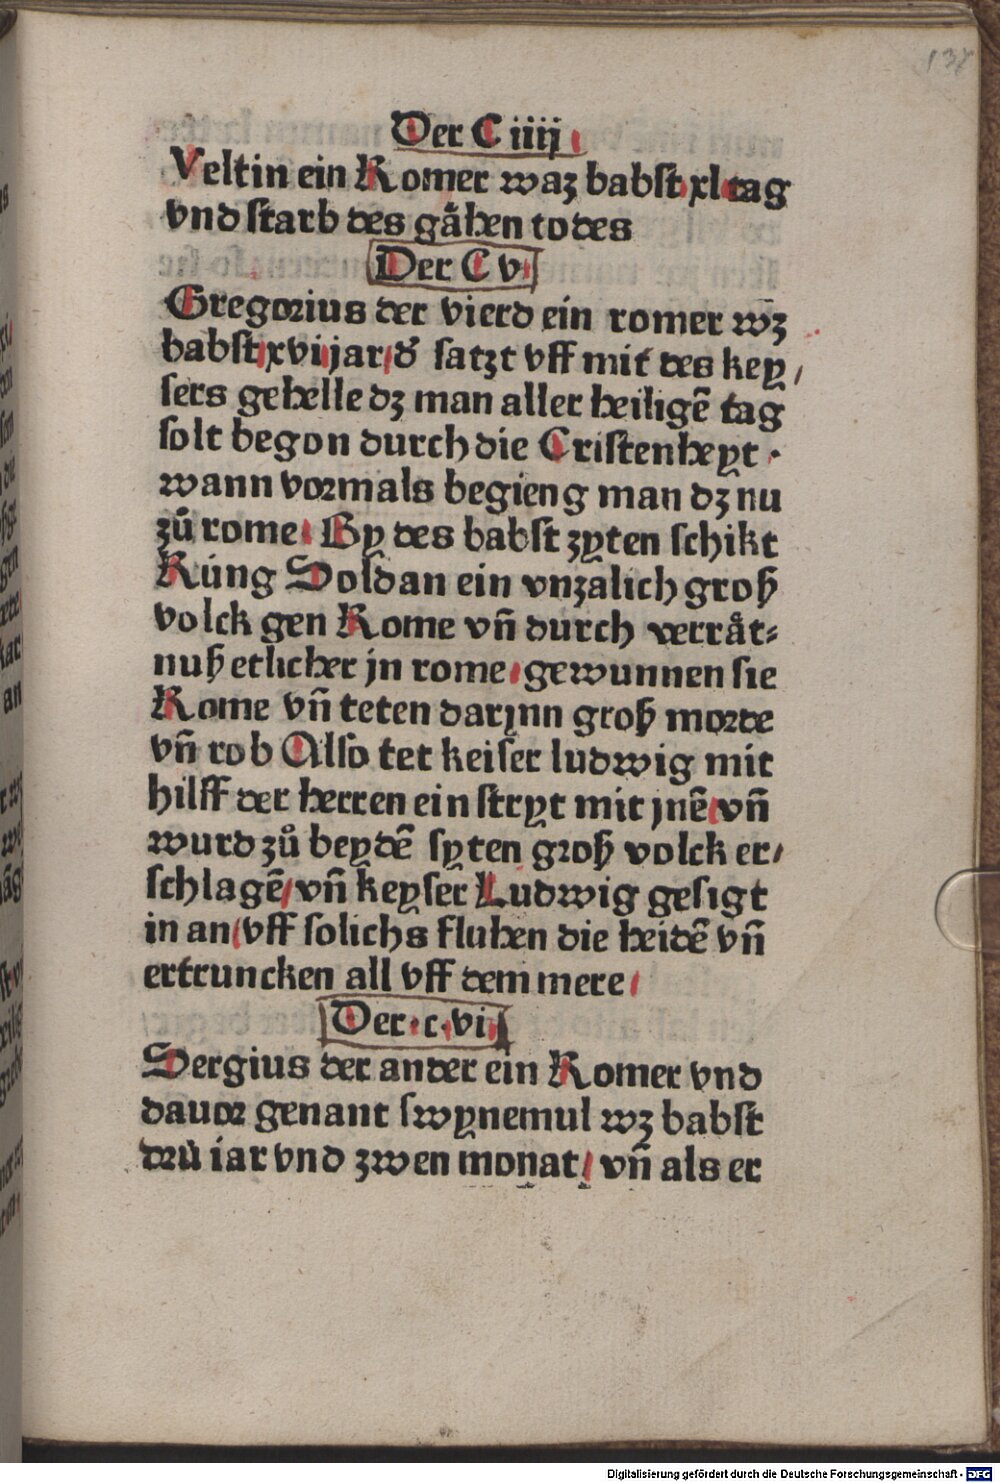 137
Der C iiij
Veltin ein Romer waz babst xl tag
vnd starb des gåhen todes
Der C v
Gregorius der vierd ein romer wz
babst xvi jar / d' satzt vff mit des key /
sers gehelle dz man aller heiligē tag
solt begon durch die Cristenheyt ·
wann vormals begieng man dz nu
zů rome By des babst zyten schikt
Kúng Soldan ein vnzalich groß
volck gen Rome vñ durch verråt⸗
nuß etlicher jn rome gewunnen sie
Rome vñ teten darjnn groß morde
vñ rob Also tet keiser ludwig mit
hilff der herren ein stryt mit jnē vñ
wurd zů beydē syten groß volck er /
schlagē / vñ keyser Ludwig gesigt
in an / vff solichs fluhen die heidē vñ
ertruncken all vff dem mere
Der · c · vi
Sergius der ander ein Romer vnd
dauor genant swynemul wz babst
drů iar vnd zwen monat / vñ als er
Digitalisierung gefördert durch die Deutsche Forschungsgemeinschaft - DFG